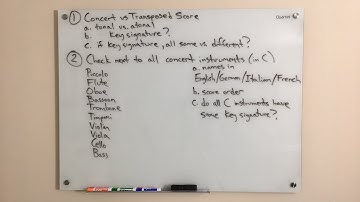 ① Concert vs Transposed Score
a. tonal vs. atonal
b. Key signature?
c. if key signature, all same vs different?
② Check next to all concert instruments (in C)
Piccolo
Flute
Oboe
Bassoon
Trombone
Timpani
Violin
Viola
Cello
Bass
a. names in
English/German/Italian/French
b. score order
c. do all C instruments have
same key signature?
Quartet